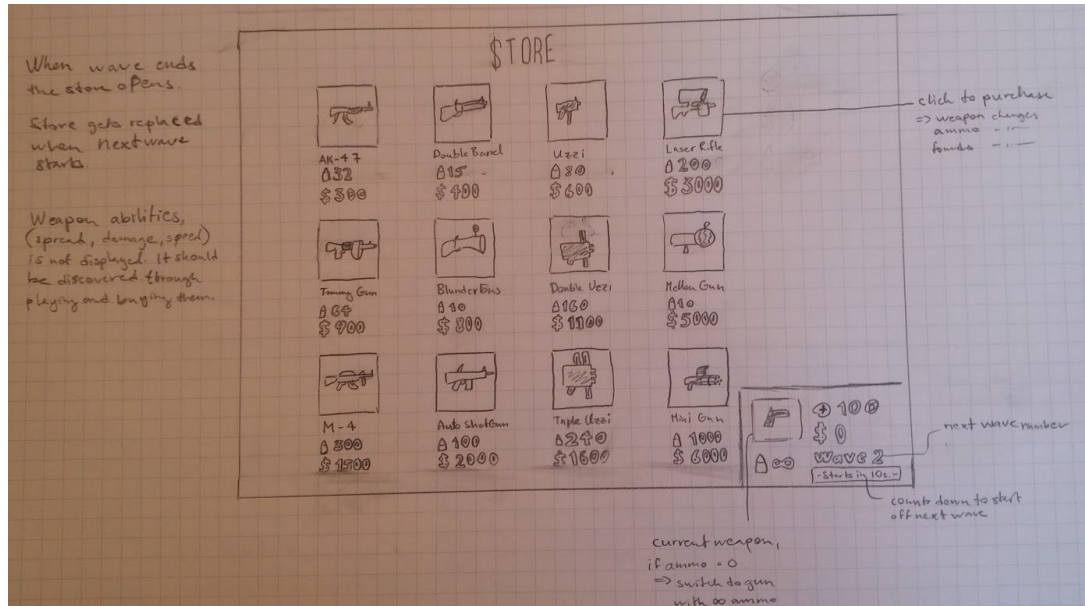 When wave ends
the store opens.
Store gets replaced
when next wave
starts.
Weapon abilities,
(spread, damage, speed)
is not displayed. It should
be discovered through
playing and buying them.
$TORE
AK-47
32
$300
Double Barrel
15
$400
Uzzi
80
$600
Laser Rifle
200
$3000
Tommy Gun
64
$900
Blunderbus
10
$800
Double Uzzi
160
$1100
Mellon Gun
10
$5000
M-4
300
$1500
Auto ShotGun
100
$2000
Triple Uzzi
240
$1600
Mini Gun
1000
$6000
100
$0
∞
Wave 2
-Starts in 10s.-
click to purchase
=> weapon changes
ammo -"-
founds -"-
next wave number
counts down to start
off next wave
current weapon,
if ammo = 0
=> switch to gun
with ∞ ammo